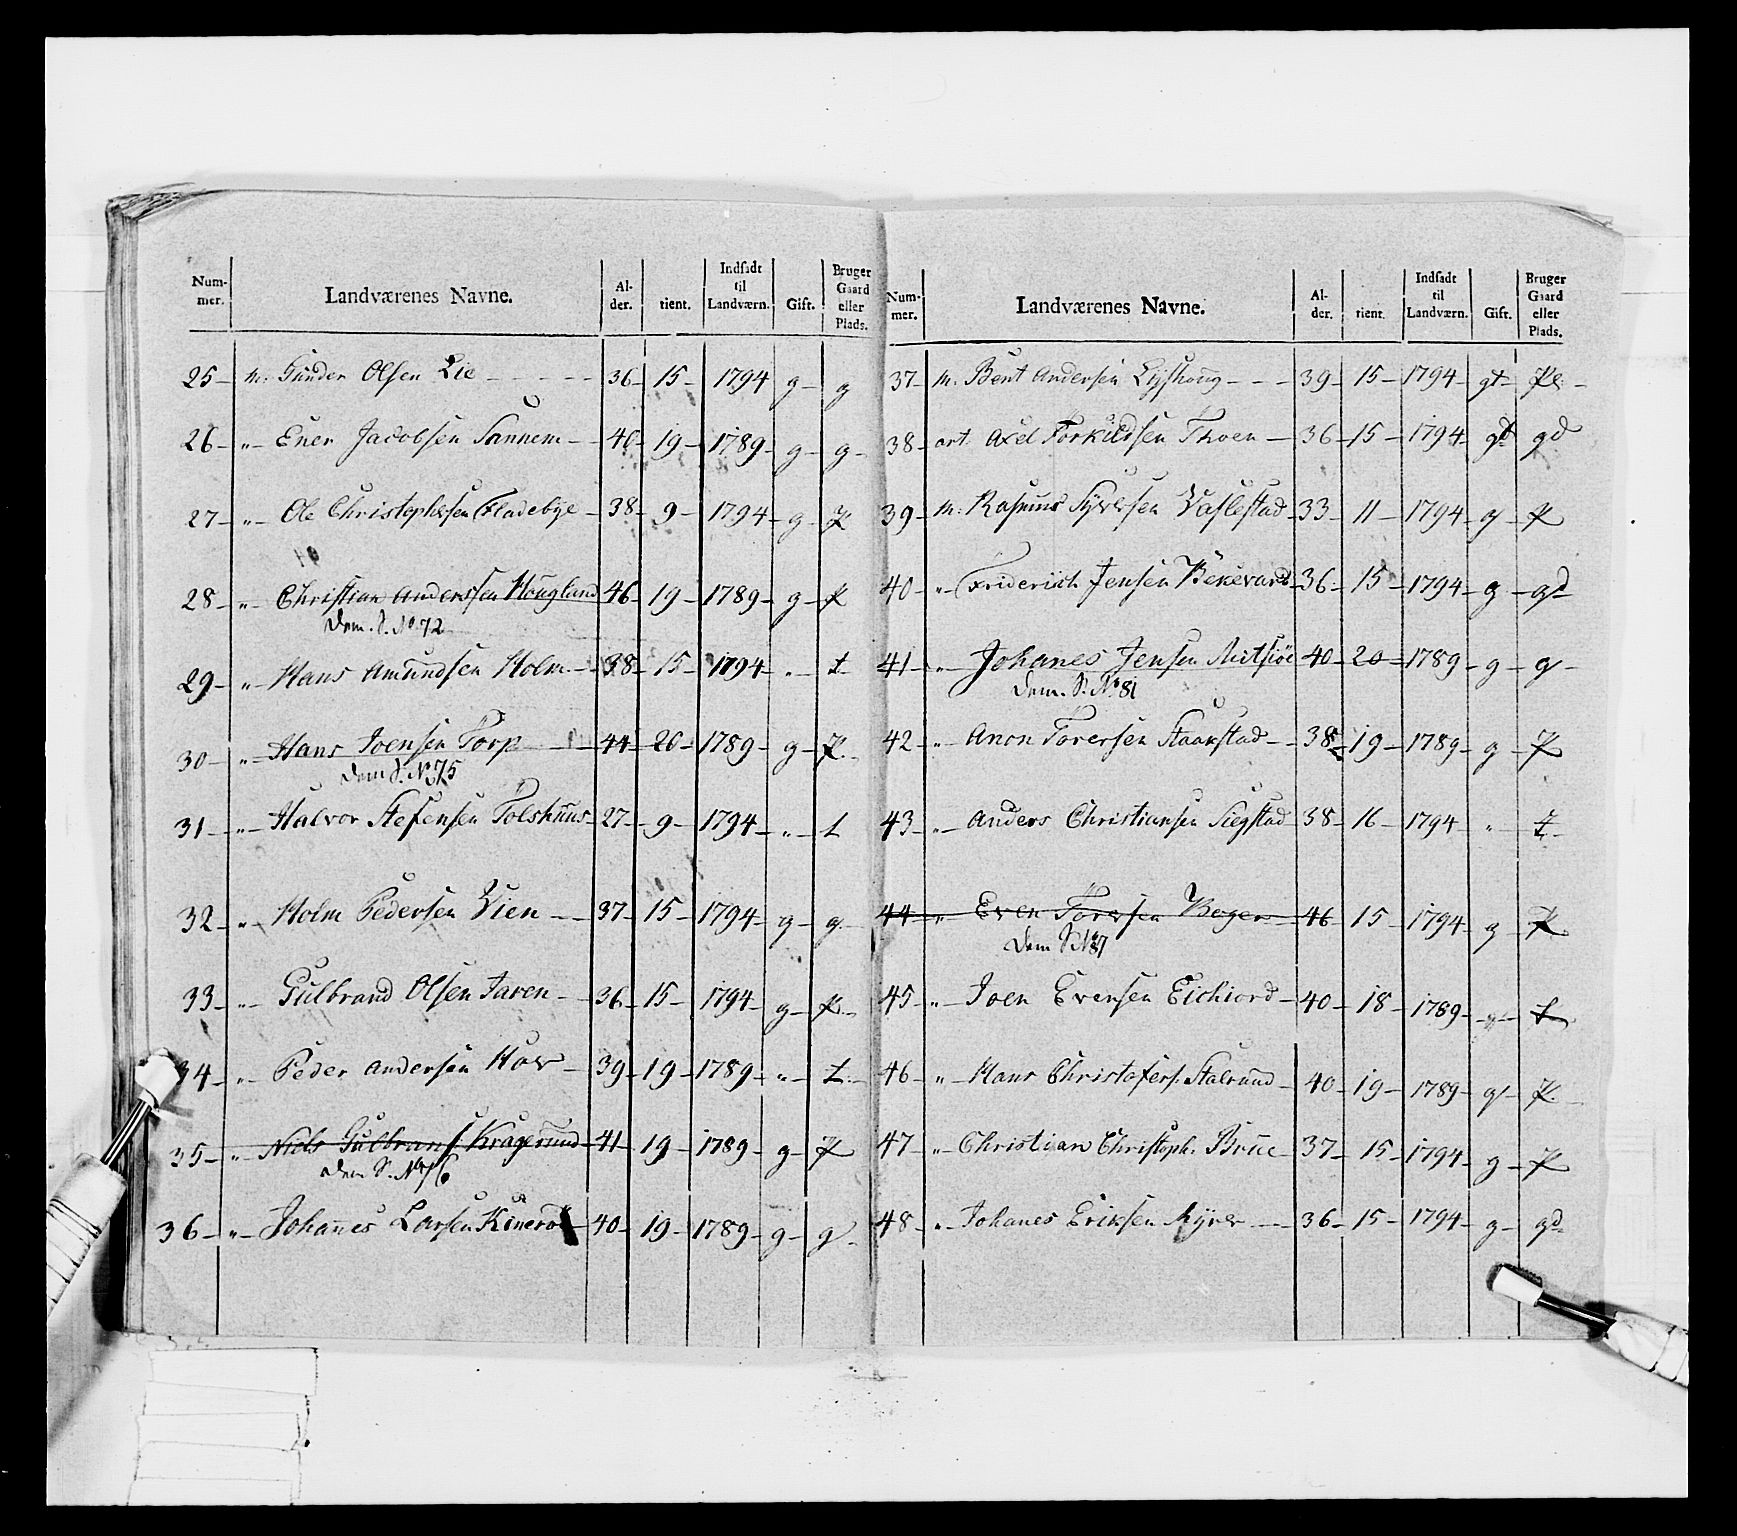 Num-
mer.
Landværenes Navne.
Al-
der.
tient.
Indsadt
til
Landværn.
Gift.
Bruger
Gaard
eller
Plads.
25 – M: Gunder Olsen Lie – 36 – 15 – 1794 g – g
26 – „ – Ener Jacobsen Sannem – 40 – 19 – 1789 – g – g –
27 – „ – Ole Christophersen Fladebye – 38 – 9 – 1794 – g – P
28 – „ – Christian Anderssen Hougland 46 – 19 – 1789 – g – P
Dem. S. No 72
29 – „ – Hans Amundsen Holm – 38 – 15 – 1794 – „ – t
30 – „ – Hans Joensen Torp – 44 – 20 – 1789 – g – P.
Dem S. No 75
31 – „ – Halvor Stefensen Tolshuus – 27 – 9 – 1794 – „ – t
32 – „ – Holm Pedersen Vien – 37 – 15 – 1794 – g – g –
33 – „ – Gulbrand Olsen Jaren – 36 – 15 – 1794 – g – P.
34 – „ – Peder Andersen Hov – 39 – 19 – 1789 – „ – t.
35 – „ – Niels Gulbrans. Kragerund – 41 – 19 – 1789 – g – P
Dem S. No 76
36 – „ – Johannes Larsen Kinerød – 40 – 19 – 1789 – g – g –
Num-
mer.
Landværenes Navne.
Al-
der.
tient.
Indsadt
til
Landværn.
Gift.
Bruger
Gaard
eller
Plads.
37 – M. Bent Andersen – 39 – 15 – 1794 – gt – Pl –
38 – art. Axel Torkildsen Thoen – 36 – 15 – 1794 – gt gd
39 – M: Rasmus Syversen Vaslestad – 33 – 11 – 1794 – g – P
40 – „ – Friderich Jensen Bekevard – 36 – 15 – 1794 – g – gd
41 – „ – Johanes Jensen Mitsiøe 40 – 20 – 1789 – g – g –
Dem. S. No 81
42 – „ – Anon Torersen Staarstad – 38 – 19 – 1789 – g – P
43 – „ – Anders Christiansen Siegstad 38 – 16 – 1794 „ t
44 – „ Even Torersen Boger – 46 – 15 – 1794 – g – P
Dem S No 87
45 – „ – Joen Evensen Eichiord – 40 – 18 – 1789 – g – t
46 – „ – Hans Christofers. Stalsund – 40 – 19 – 1789 – g – P.
47 – „ – Christian Christoph. Bruce – 37 – 15 – 1794 – g – P
48 – „ – Johanes Eriksen Myrer – 36 – 15 – 1794 – g – gd